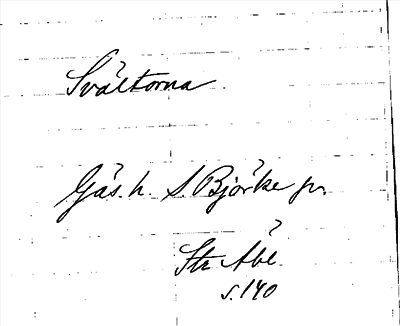 Svältorna
Gäs. h. S Björke sn.
Str Abl.
s. 140